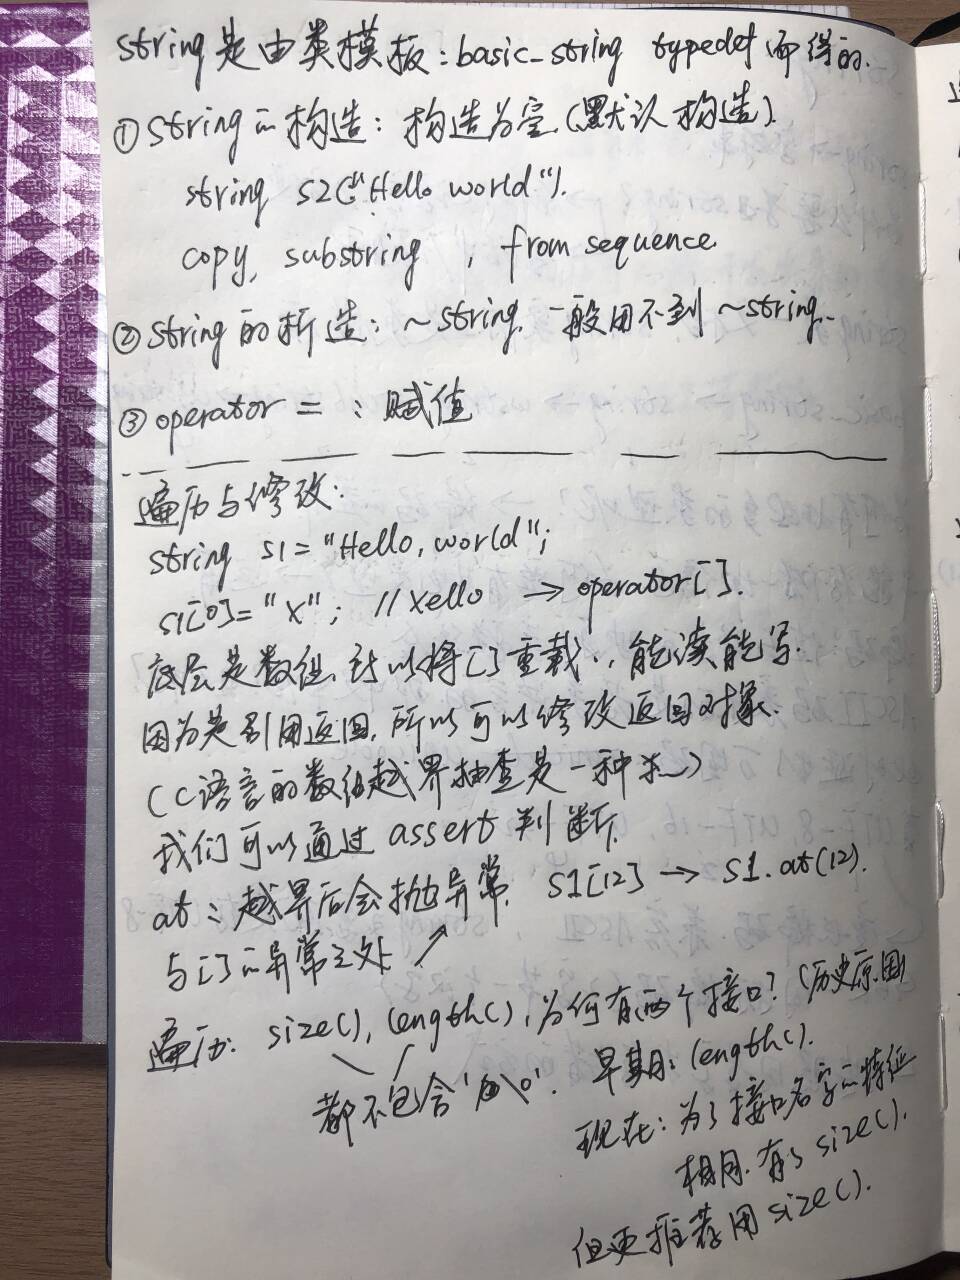 string是由类模板:basic_string typedef而得的.
①string的构造:构造为空(默认构造).
string s2("Hello world").
copy, substring , from sequence
②string的析造:~string. 一般用不到~string.
③operator = : 赋值
遍历与修改:
string s1="Hello, world";
s1[0]="x"; //xello → operator[].
底层是数组,所以将[]重载, 能读能写.
因为是引用返回,所以可以修改返回对象.
(C语言的数组越界抽查是一种)
我们可以通过assert判断.
at:越界后会抛异常. S1[12] → S1.at(12).
与[]的异常之处
遍历: size(), length(),为何有两个接口?(历史原因)
都不包含'\0'. 早期:length().
现在:为了接口名字的特征
相同.有了size().
但更推荐用size().